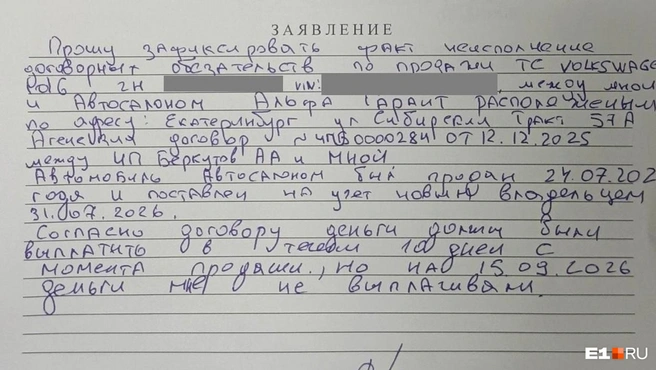 ЗАЯВЛЕНИЕ
Прошу зафиксировать факт неисполнение
договорных обязательств по продажи ТС VOLKSWAGE
Polo, гн VIN: , между мной
и Автосалоном Альфа Гарант расположенным
по адресу: Екатеринбург ул Сибирский Тракт 57А
Агенский договор №ЧПБ0000284 ОТ 12.12.2025
между ИП Беркутов АА и мной
Автомобиль Автосалоном был продан 24.07.202
года и поставлен на учет новым владельцем
31.07.2026.
Согласно договору деньги должны были
выплатить в течении 10 дней с
момента продажи, но на 15.09.2026
деньги мне не выплачивали.
E1.RU